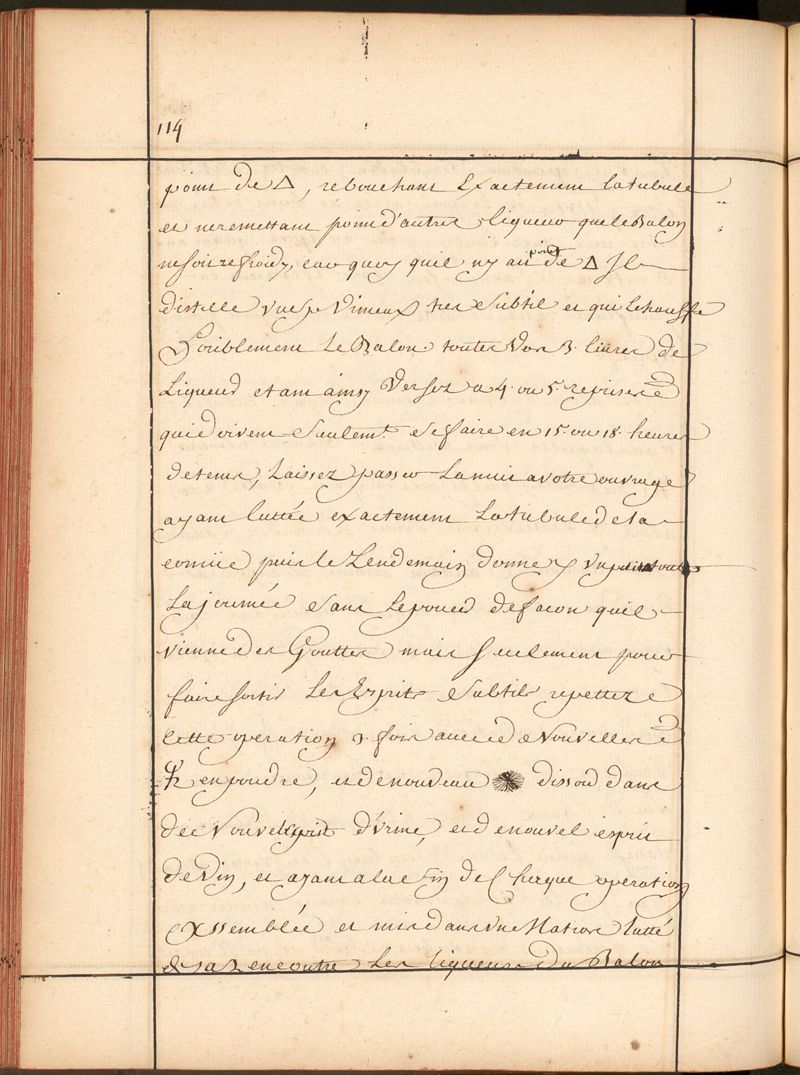 114
point de △, rebouchant Exactement la tubule
et ne remettant point d'autres Liqueur que le Balon
ne soit refroidy, car quoy quil ny ait point de △ Il
distille tres Subtil et qui Echauffe
horiblement Le Balon. toutes Vos 3. livres de
Liqueur etant ainsy Versez a 4. ou 5. reprises
qui doivent Seulemt. Se faire en 15. ou 18. heures
de tems, Laissez passer La nuit a votre ouvrage
ayant luttée exactement La tubule de la
cornüe puis le Lendemain donnez
La journée Sans Le pousser de facon quil
vienne des Gouttes mais Seulement pour
faire Sortir Les Esprits Subtils repettez
Cette operation 3. fois avec de Nouvelle
♄ en poudre, et de nouveau ✴ dissout dans
de Nouvel Esprit d'Urine, et de nouvel esprit
de Vin, et ayant a la fin de Chaque operation
Assemblée et mis dans Une Matras lutté
de sa Rencontre Les Liqueurs du Balon